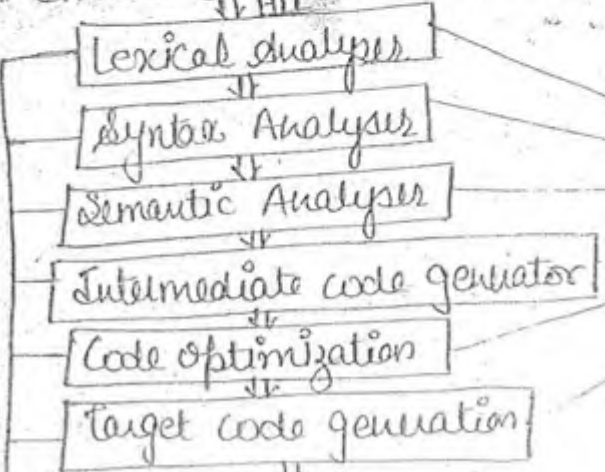 Lexical Analyser
Syntax Analyser
Semantic Analyser
Intermediate code generator
Code optimization
Target code generation